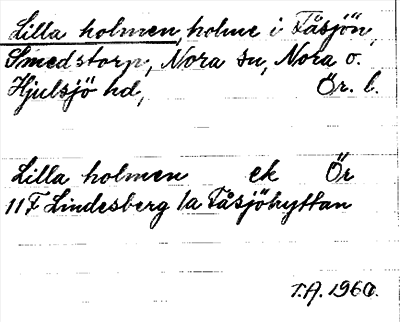 Lilla holmen, holme i Fåsjön,
Smedstorp, Nora sn, Nora o.
Hjulsjö hd, Ör. l.
Lilla holmen ek Ör
11F Lindesberg 1a Fåsjöhyttan
T.A. 1960.